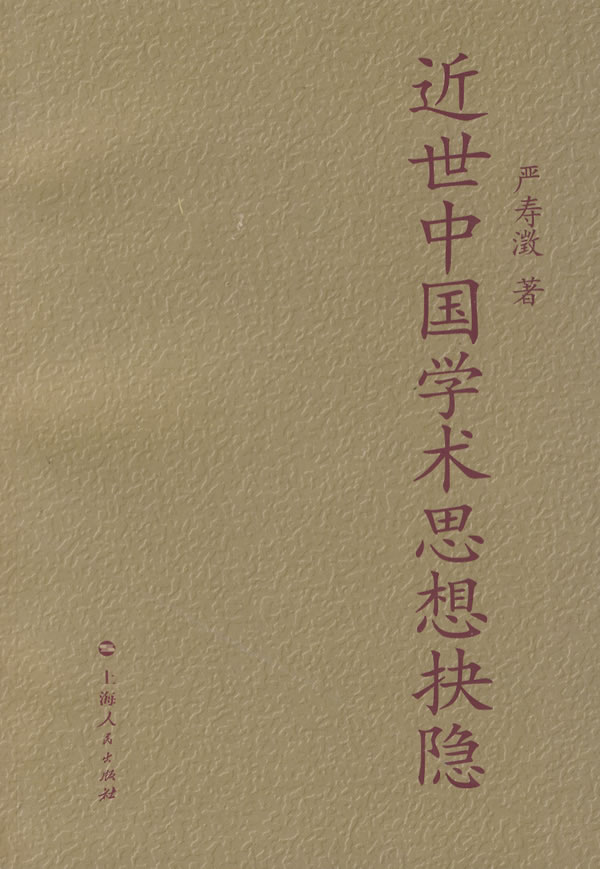 严寿澂 著
近世中国学术思想抉隐
上海人民出版社